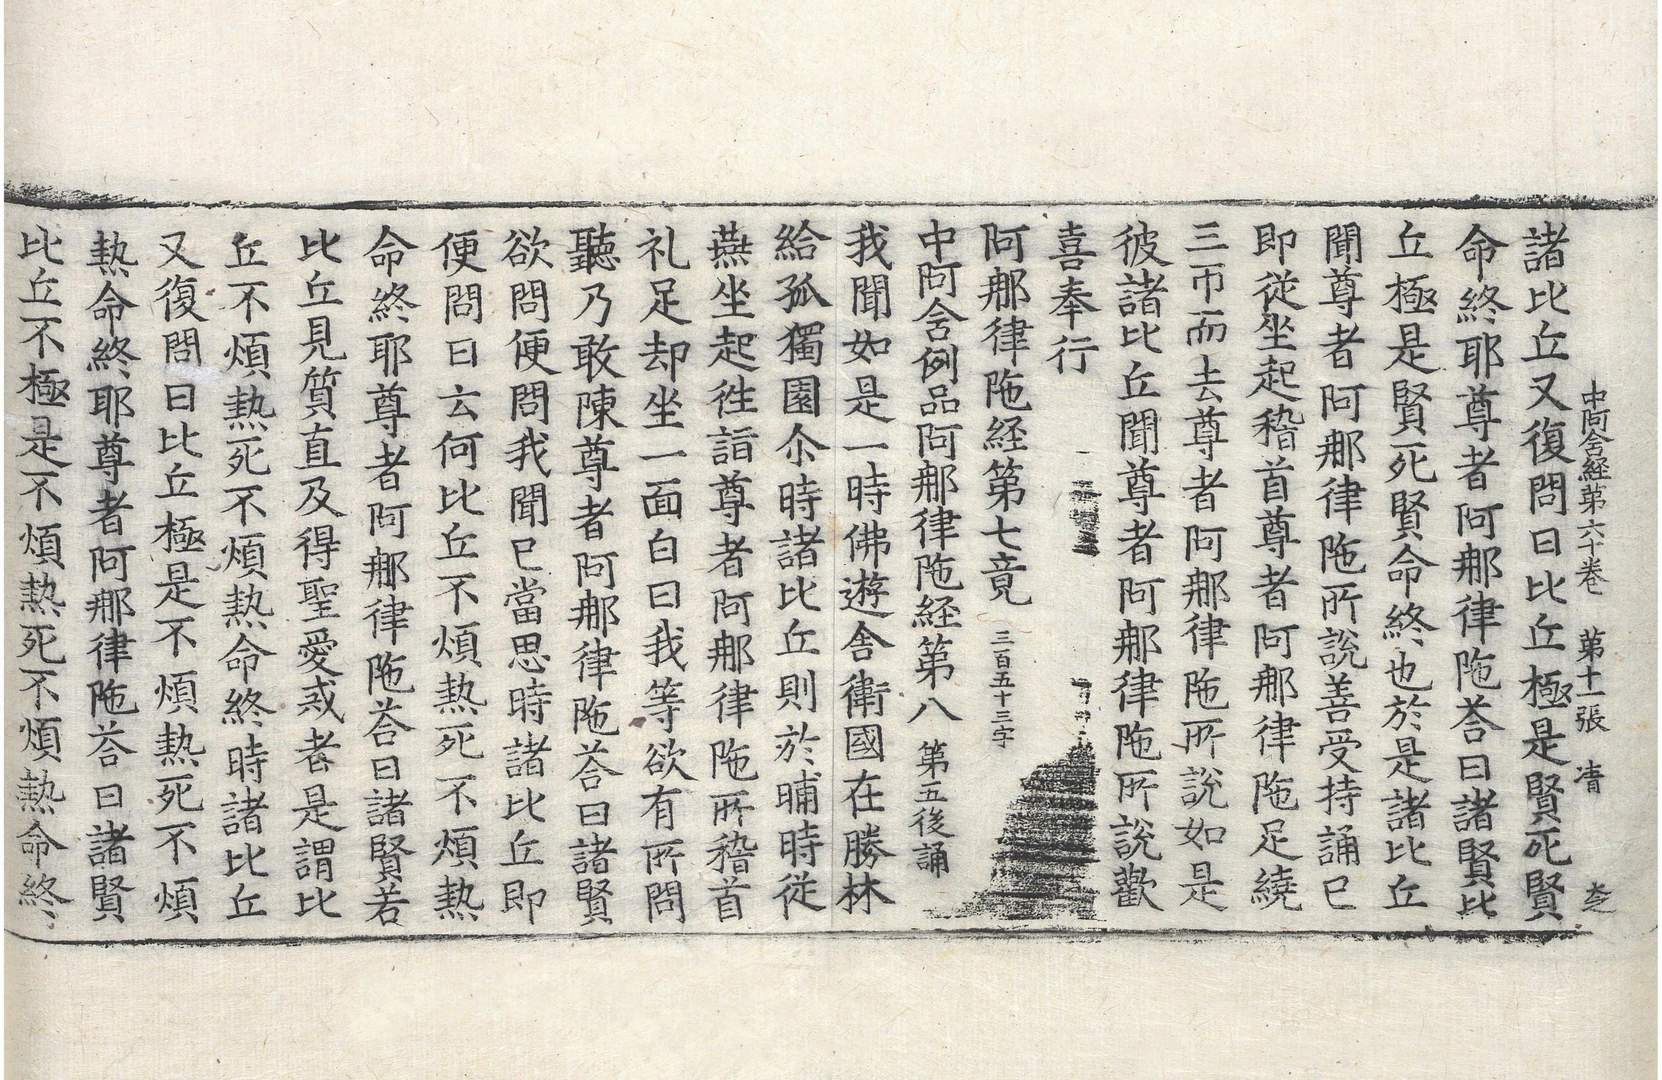 中阿含経第六十巻　第十一張　清
諸比丘又復問曰比丘極是賢死賢
命終耶尊者阿那律陁荅曰諸賢比
丘極是賢死賢命終也於是諸比丘
聞尊者阿那律陁所說善受持誦已
即從坐起稽首尊者阿那律陁足繞
三帀而去尊者阿那律陁所說如是
彼諸比丘聞尊者阿那律陁所說歡
喜奉行
阿那律陁経第七竟　三百五十三字
中阿含例品阿那律陁経第八　第五後誦
我聞如是一時佛遊舍衛國在勝林
給孤獨園尒時諸比丘則於晡時從
燕坐起徃詣尊者阿那律陁所稽首
礼足却坐一面白曰我等欲有所問
聽乃敢陳尊者阿那律陁荅曰諸賢
欲問便問我聞已當思時諸比丘即
便問曰云何比丘不煩熱死不煩熱
命終耶尊者阿那律陁荅曰諸賢若
比丘見質直及得聖愛戒者是謂比
丘不煩熱死不煩熱命終時諸比丘
又復問曰比丘極是不煩熱死不煩
熱命終耶尊者阿那律陁荅曰諸賢
比丘不極是不煩熱死不煩熱命終